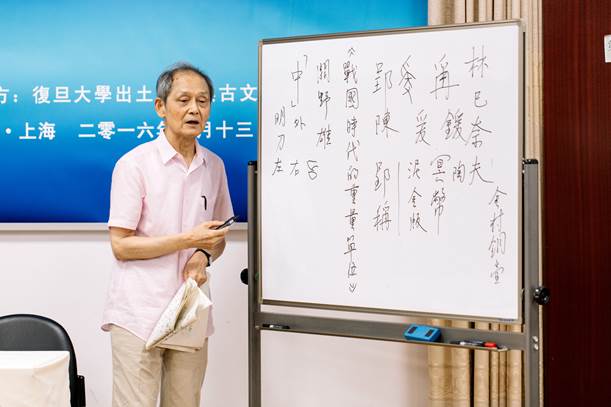 方：復旦大學出土古文
·上海　二零一六年月十三
林巳奈夫
金村銅壺
爯鍰陶
冥幣
爰爰
泥金版
郢陳郢稱
《戰國時代的重量單位》
關野雄
「中」外
右
明刀左